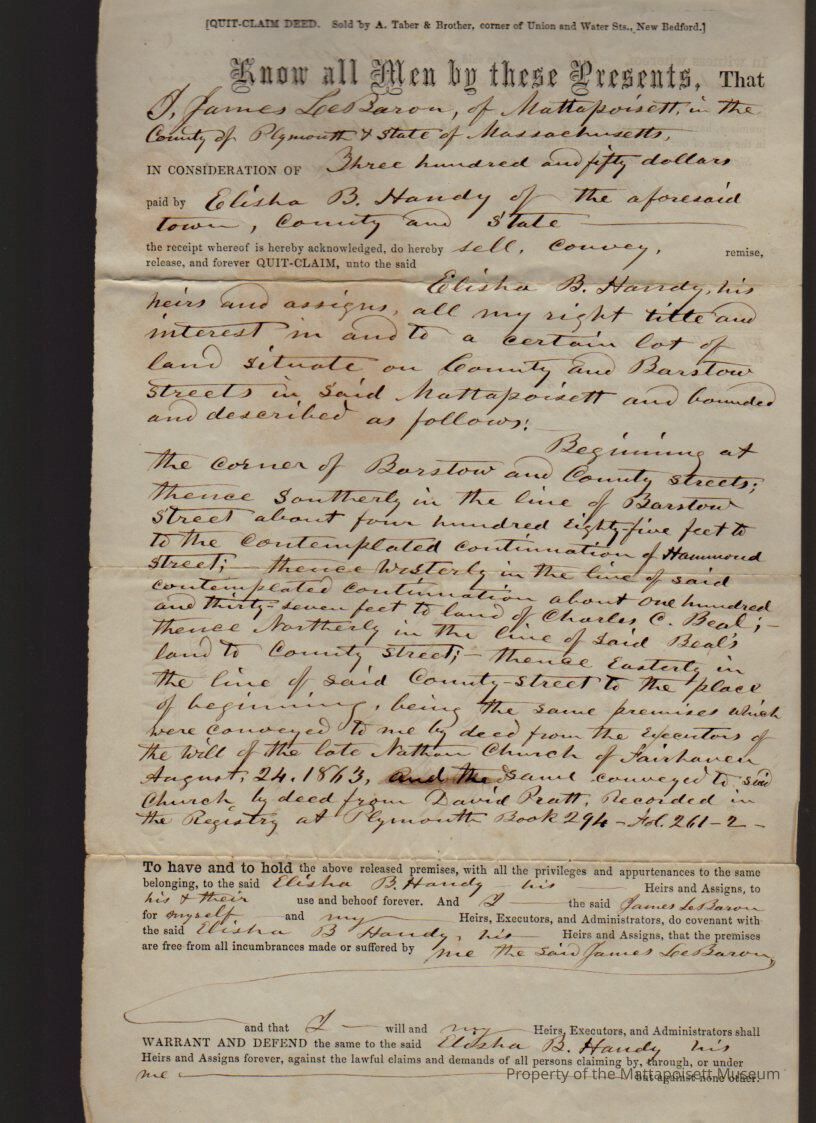 [QUIT-CLAIM DEED. Sold by A. Taber & Brother, corner of Union and Water Sts., New Bedford.]
Know all Men by these Presents, That
I, James LeBaron, of Mattapoisett, in the
County of Plymouth & State of Massachusetts,
IN CONSIDERATION OF Three hundred and fifty dollars
paid by Elisha B. Handy of the aforesaid
town, County and State
the receipt whereof is hereby acknowledged, do hereby sell, convey, remise,
release, and forever QUIT-CLAIM, unto the said
Elisha B. Handy, his
heirs and assigns, all my right title and
interest in and to a certain lot of
land situate on County and Barstow
streets in said Mattapoisett and bounded
and described as follows:
Beginning at
the corner of Barstow and County streets;
thence Southerly in the line of Barstow
street about four hundred Eighty-five feet to
to the contemplated continuation of Hammond
street; – thence Westerly in the line of said
contemplated continuation about one hundred
and thirty-seven feet to land of Charles C. Beal; –
thence Northerly in the line of said Beal's
land to County street; – thence Easterly in
the line of said County-street to the place
of beginning, being the same premises which
were conveyed to me by deed from the Executors of
the will of the late Nathan Church of Fairhaven
August, 24, 1863, and the same conveyed to said
Church by deed from David Pratt, Recorded in
the Registry at Plymouth Book 294 – Fol. 261-2 –
To have and to hold the above released premises, with all the privileges and appurtenances to the same
belonging, to the said Elisha B. Handy his Heirs and Assigns, to
his & their use and behoof forever. And I the said James LeBaron
for myself and my Heirs, Executors, and Administrators, do covenant with
the said Elisha B Handy, his Heirs and Assigns, that the premises
are free from all incumbrances made or suffered by me the said James LeBaron,
and that I will and my Heirs, Executors, and Administrators shall
WARRANT AND DEFEND the same to the said Elisha B. Handy his
Heirs and Assigns forever, against the lawful claims and demands of all persons claiming by, through, or under
me but against none other.
Property of the Mattapoisett Museum